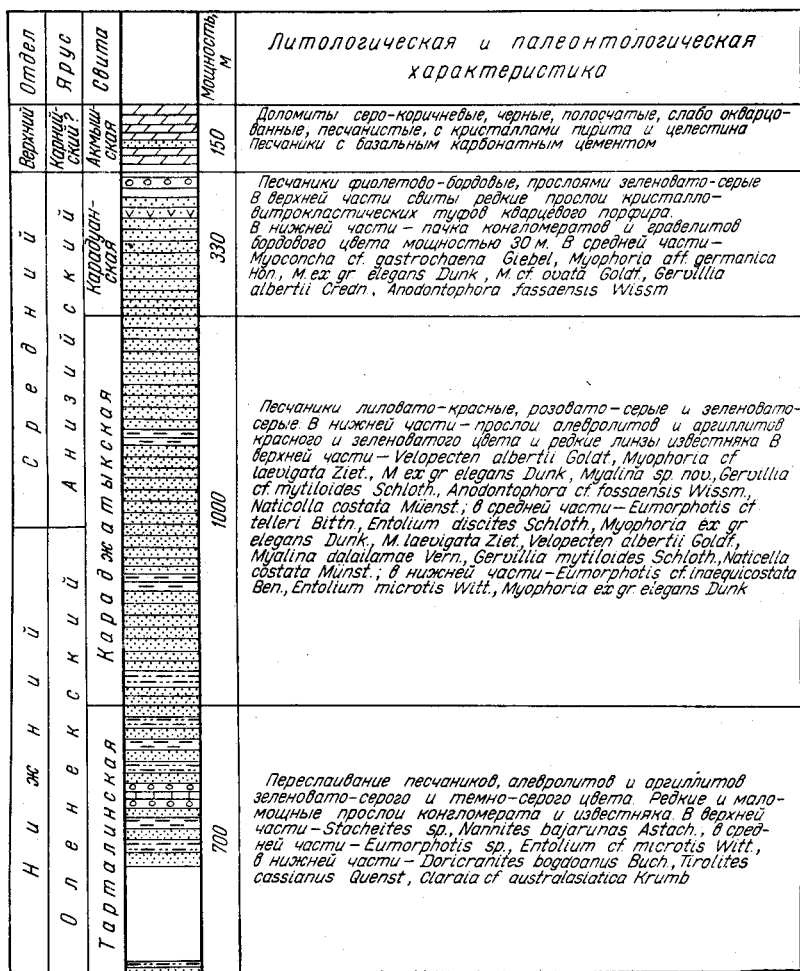 Отдел
Ярус
Свита
Мощность, м
Литологическая и палеонтологическая
характеристика
Верхний
Карний-
ский?
Акмыш-
ская
150
Доломиты серо-коричневые, черные, полосчатые, слабо окварцо-
ванные, песчанистые, с кристаллами пирита и целестина
Песчаники с базальным карбонатным цементом
Средний
Анизийский
Карадуан-
ская
330
Песчаники фиолетово-бордовые, прослоями зеленовато-серые
В верхней части свиты редкие прослои кристалло-
витрокластических туфов кварцевого порфира.
В нижней части – пачка конгломератов и гравелитов
бордового цвета мощностью 30 м. В средней части –
Myoconcha cf. gastrochaena Giebel, Myophoria aff. germanica
Hön., M. ex gr elegans Dunk, M. cf. ovata Goldf, Gervilllia
albertii Credn., Anodontophora fassaensis Wissm
Караджатыкская
1000
Песчаники лиловато-красные, розовато-серые и зеленовато-
серые. В нижней части – прослои алевролитов и аргиллитов
красного и зеленоватого цвета и редкие линзы известняка В
верхней части – Velopecten albertii Goldt, Myophoria cf
laevigata Ziet., M ex gr elegans Dunk, Myalina sp. nov., Gervillia
cf. mytiloides Schloth., Anodontophora cf. fossaensis Wissm.,
Naticolla costata Müenst.; в средней части – Eumorphotis cf
telleri Bittn., Entolium discites Schloth., Myophoria ex gr
elegans Dunk., M. laevigata Ziet, Velopecten albertii Goldf,
Myalina dalailamae Vern., Gervillia mytiloides Schloth., Naticella
costata Münst.; в нижней части – Eumorphotis cf. inaequicostata
Ben., Entolium microtis Witt., Myophoria ex gr. elegans Dunk
Нижний
Оленекский
Тарталинская
700
Переслаивание песчаников, алевролитов и аргиллитов
зеленовато-серого и темно-серого цвета. Редкие и мало-
мощные прослои конгломерата и известняка. В верхней
части – Stacheites sp., Nannites bajarunas Astach., в сред-
ней части – Eumorphotis sp., Entolium cf microtis Witt.,
в нижней части – Doricranites bogdoanus Buch, Tirolites
cassianus Quenst, Claraia cf australasiatica Krumb